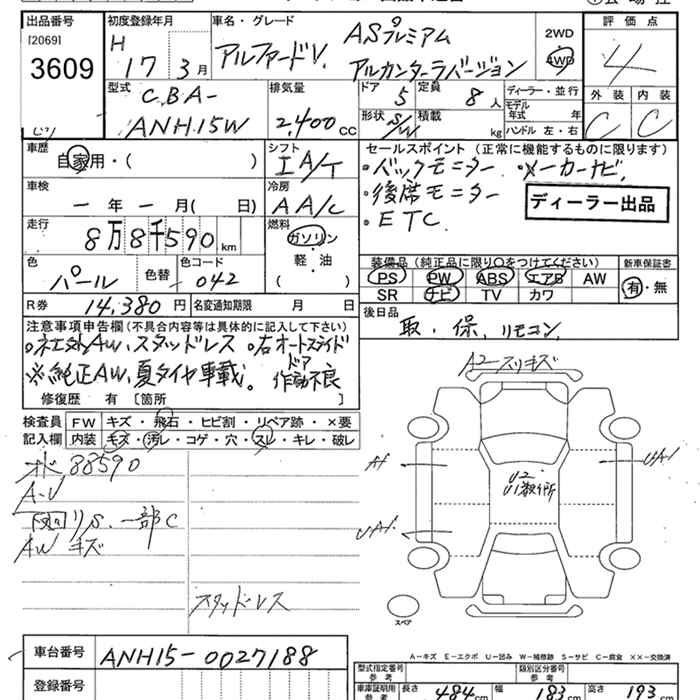 出品番号
[2069]
3609
初度登録年月
H 17 3月
車名・グレード
アルファードV. ASプレミアム
アルカンターラバージョン
2WD
4WD
評価点
4
外装 内装
C C
型式
CBA-
ANH15W
排気量
2,400cc
ドア 5
定員 8人
形状 S/W
積載 kg
ディーラー・並行
モデル年式 年
ハンドル 左・右
車歴
自家用・( )
シフト
IA/T
セールスポイント(正常に機能するものに限ります)
・バックモニター ・メーカーナビ,
・後席モニター
・ETC.
ディーラー出品
車検
ー年ー月( 日)
冷房
AA/C
走行
8万8千590km
燃料
ガソリン
軽・油
( )
色
パール
色替
色コード
042
装備品(純正品に限り○をつけてください)
PS PW ABS エアB AW
SR ナビ TV カワ
新車保証書
有・無
R券 14,380円
名変通知期限 月 日
後日品
取.保.リモコン
注意事項申告欄(不具合内容等は具体的に記入して下さい)
・社外AW、スタッドレス ・右オートスライドドア作動不良
※純正AW、夏タイヤ車載。
修復歴 有 [箇所
検査員記入欄
FW キズ・飛石・ヒビ割・リペア跡・×要
内装 キズ・汚レ・コゲ・穴・スレ・キレ・破レ
88590
A-U
リS.一部C
AWキズ
スタッドレス
A2 スリキズ
A1
UA1
UA1
U2
スペア
A-キズ E-エクボ U-凹み W-補修跡 S-サビ C-腐食 ××-交換済
車台番号
ANH15-0027188
登録番号
型式指定番号
参考
類別区分番号
参考
車庫証明用
参考
長さ 484cm
幅 183cm
高さ 193cm